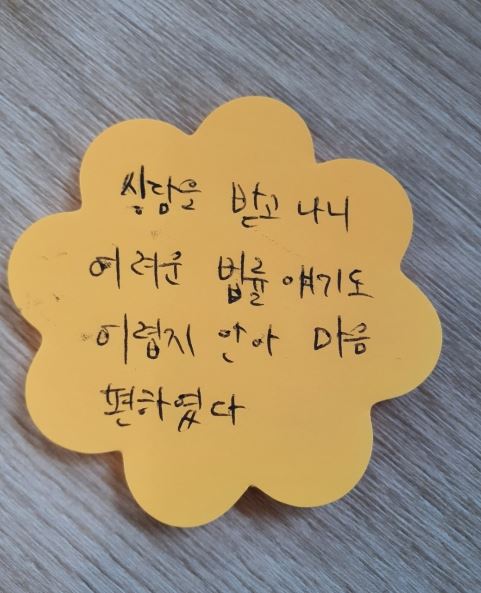 상담을 받고 나니
어려운 법률 얘기도
어렵지 안아 마음
편하였다